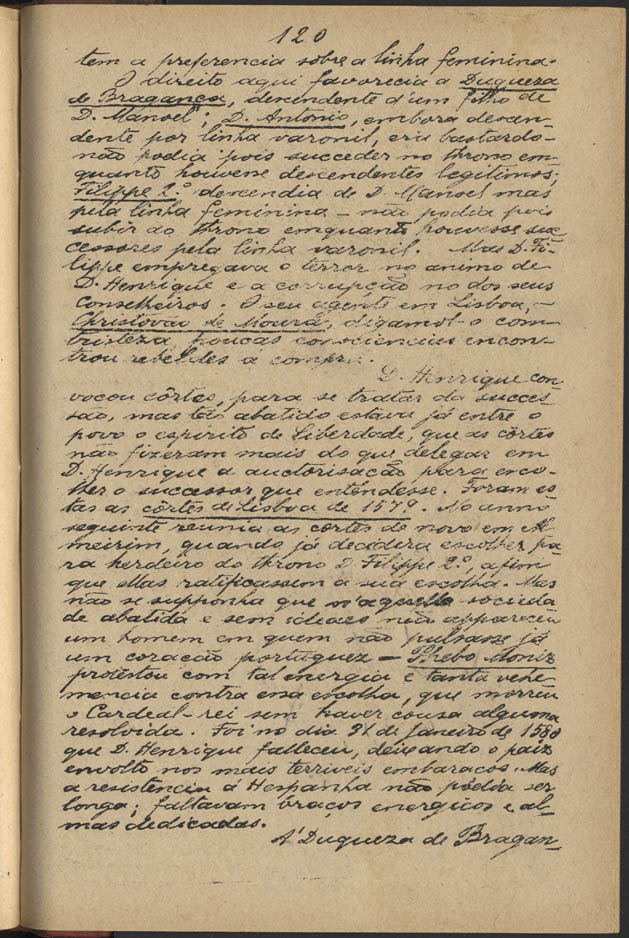 120
tem a preferencia sobre a linha feminina.
O direito aqui favorecia a Duqueza
de Bragança, descendente d'um filho de
D. Manoel; D. Antonio, embora descen-
dente por linha varonil, era bastardo-
não podia pois succeder no throno em-
quanto houvesse descendentes legitimos;
Filippe 2.º descendia de D. Manoel mas
pela linha feminina - não podia pois
subir ao throno emquanto houvesse suc-
cessores pela linha varonil. Mas D. Fi-
lippe empregava o terror no animo de
D. Henrique e a corrupção no dos seus
Conselheiros. O seu agente em Lisboa,-
Christovão de Moura, digamol-o com
tristeza, poucas consciencias encon-
trou rebeldes a compra.
D. Henrique con
vocou côrtes, para se tratar da succes
são, mas tão abatido estava já entre o
povo o espirito de Liberdade, que as côrtes
não fizeram mais do que delegar em
D. Henrique a auctorisação para esco-
lher o successor que entendesse. Foram es
tas as côrtes de Lisboa de 1579. No anno
seguinte reunia as côrtes de novo em Al
meirim, quando já decidira escolher pa
ra herdeiro do throno D. Filippe 2.º, afim
que ellas ratificassem a sua escolha. Mas
não se supponha que n'aquella socieda
de abatida e sem ideaes não appareceu
um homem em quem não pulsasse já
um coração portuguez - Phebo Moniz
protestou com tal energia e tanta vehe
mencia contra essa escolha, que morreu
o Cardeal-rei sem haver cousa alguma
resolvida. Foi no dia 31 de Janeiro de 1580
que D. Henrique falleceu, deixando o paiz
envolto nos mais terriveis embaraços. Mas
a resistencia á Hespanha não podia ser
longa; faltavam braços energicos e al-
mas dedicadas.
A' Duqueza de Bragan-